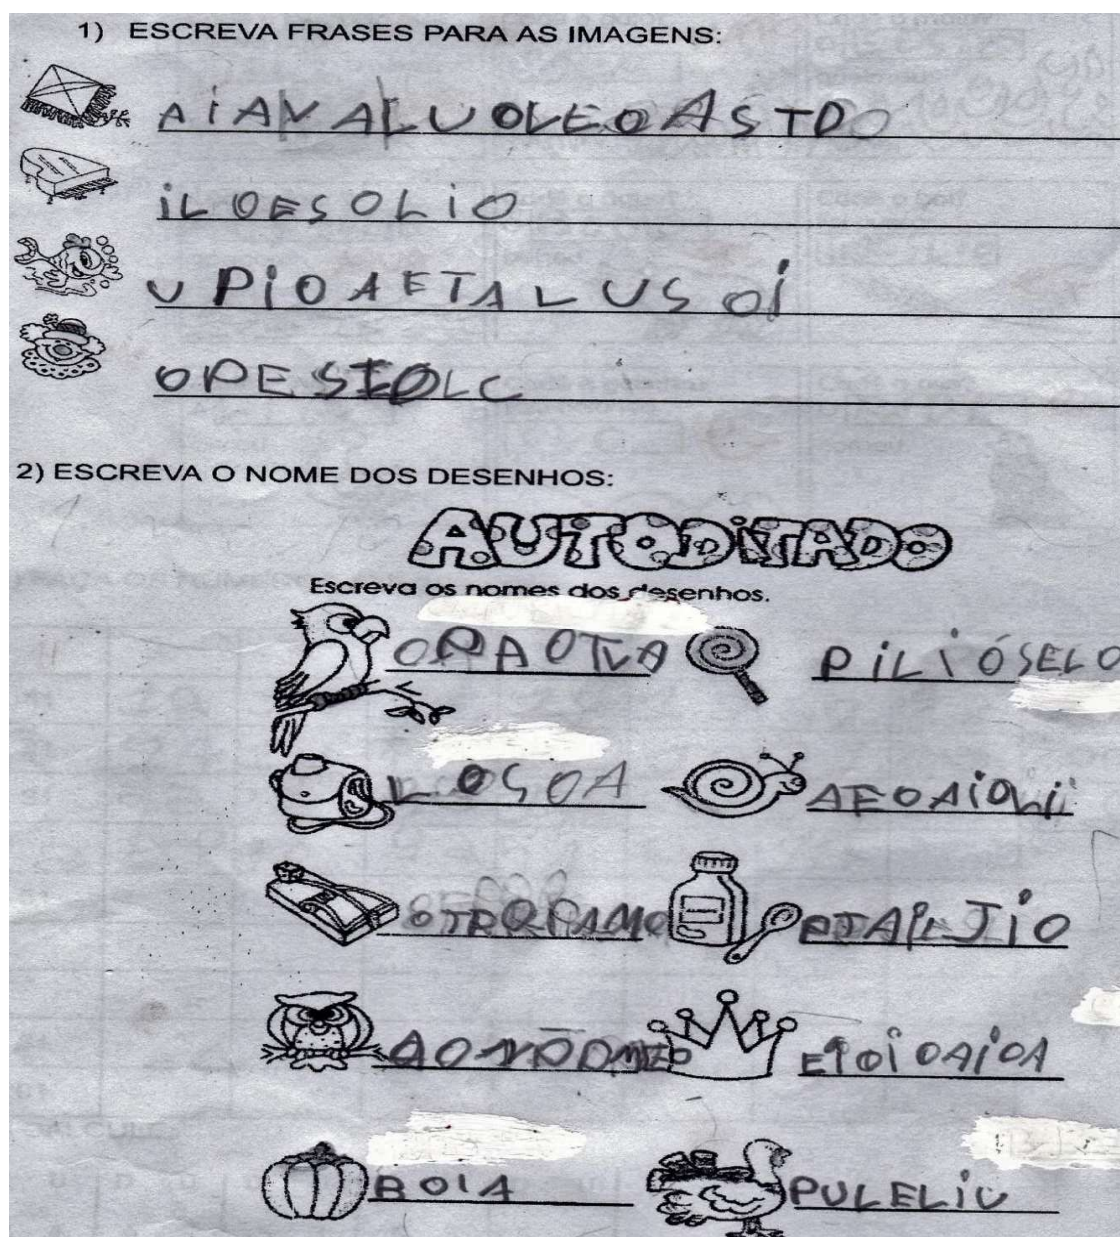 1) ESCREVA FRASES PARA AS IMAGENS:
AiAVALUOLEOASTDO
iLOESOLiO
UPiOAFTALUSOi
OPESIOLC
2) ESCREVA O NOME DOS DESENHOS:
AUTODITADO
Escreva os nomes dos desenhos.
PiLiÓSELO
LOSOA
AEOAiOLii
OTROPAMO
EiOiOAiOA
BOIA
PULELiU